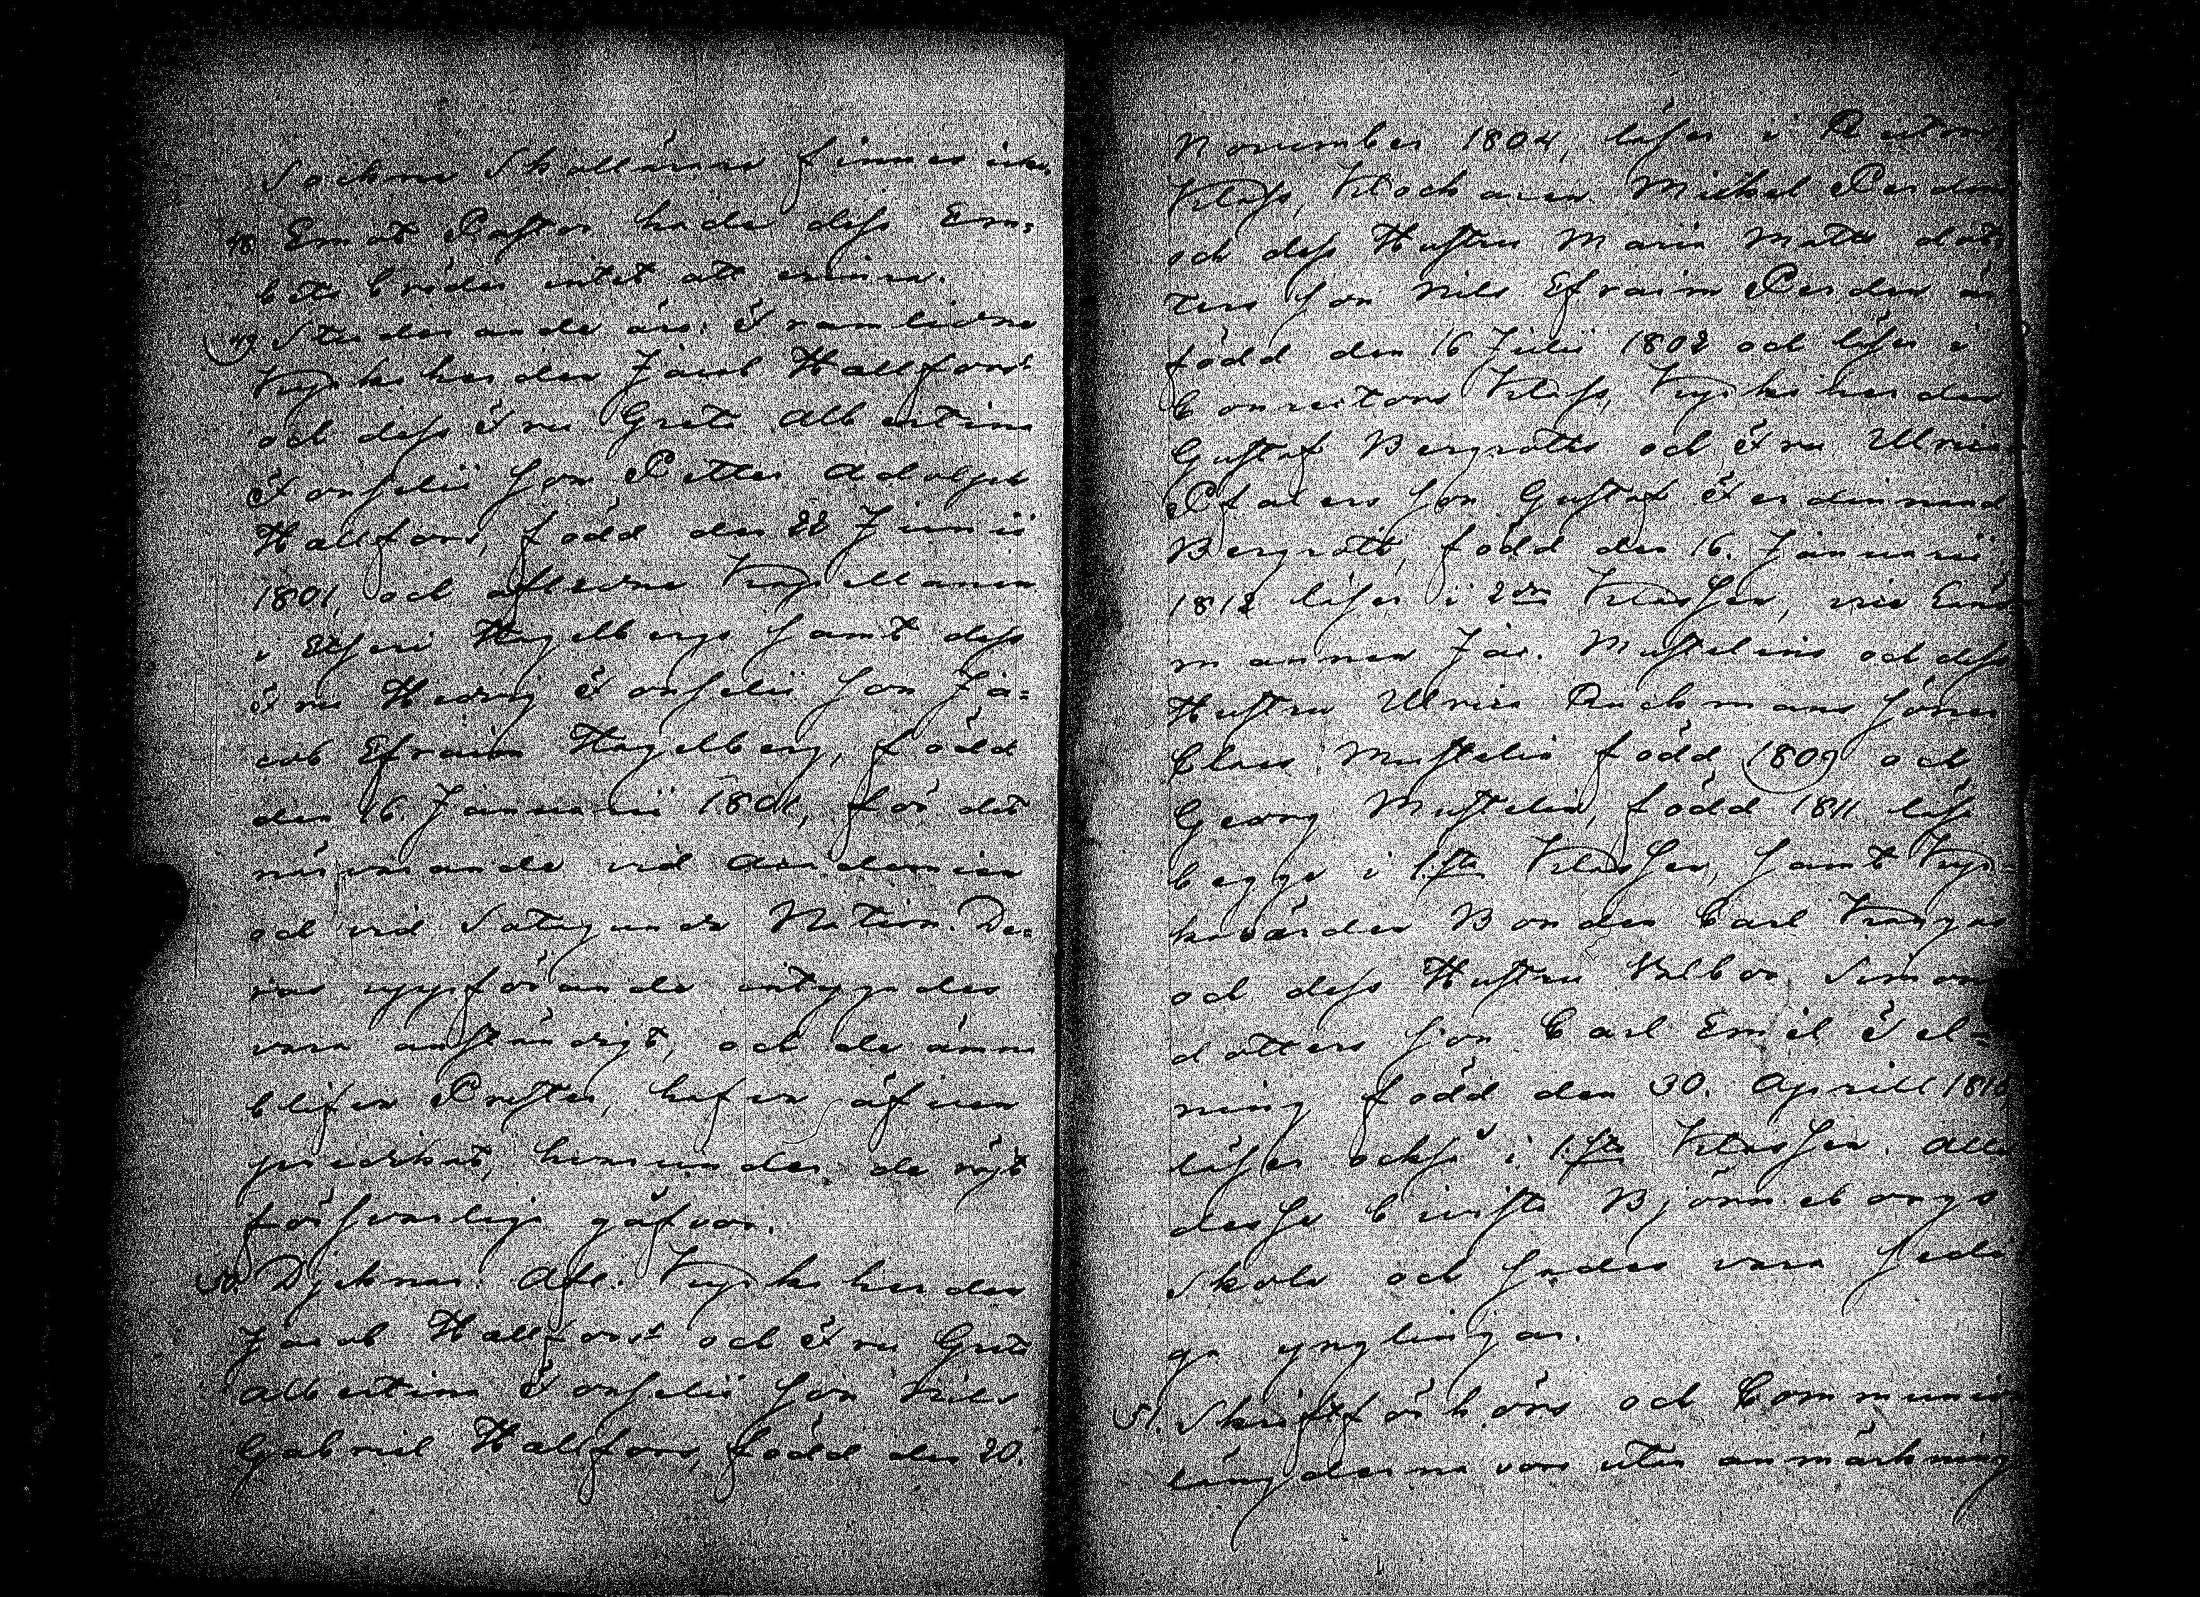 Sockne Skollärare finnes icke.
48. Emot Pastor hade dess Em=
bets bröder intet att erinra.
49. Studerande äro: Framledne
Kyrkoherden Jacob Hallfors
och dess Fru Greta Albertina
Forselii son Petter Adolph
Hallfors, född den 22 Junii
1801, och afledne Kapellanen
i Etseri Hagelbergs samt dess
Fru Hedvig Forselii son Ja=
cob Efraim Hagelberg, född
den 16. Januarii 1801, för det
närvarande vid Academien
och vid Satagunda Nation. De=
ras uppförande intygades
vara anständigt, och de ämna
blifva Prester, hafva äfven
predikat, hvarunder de röjt
försvarliga gåfvor.
50. Djeknar: Afl. Kyrkoherden
Jacob Hallfors och Fru Greta
Albertina Forselii son Nils
Gabriel Hallfors, född den 20.
November 1804, läser i Rectors
Klass, Klockaren Mickel Perden
och dess Hustru Maria Matts dot
ters son Nils Efraim Perden är
född den 16 Julii 1802 och läser i
Conrectors Klass, Kyrkoherden
Gustaf Bergroths och Fru Ulrica
Pfalers son Gustaf Ferdinand
Bergroth, född den 16. Januarii
1812 läser i 2dra Klassen,
mannen Jac. Mustelins och dess
Hustru Ulrica Ruckmans söner
Claes Mustelin född 1809 och
Georg Mustelin, född 1811 läsa
begge i 1sta Klassen, samt Kyr=
kovärden Bonden Carl Knapas
och dess Hustru Valbor Simons
dotters son Carl Emil Fel=
ning född den 30. Aprill 1810
läser också i 1sta Klassen. Alla
desse bevista Björneborgs
Skola och sades vara sedi
ga ynglingar.
51. Skriftförhörs och Communion
längderna voro utan anmärkning